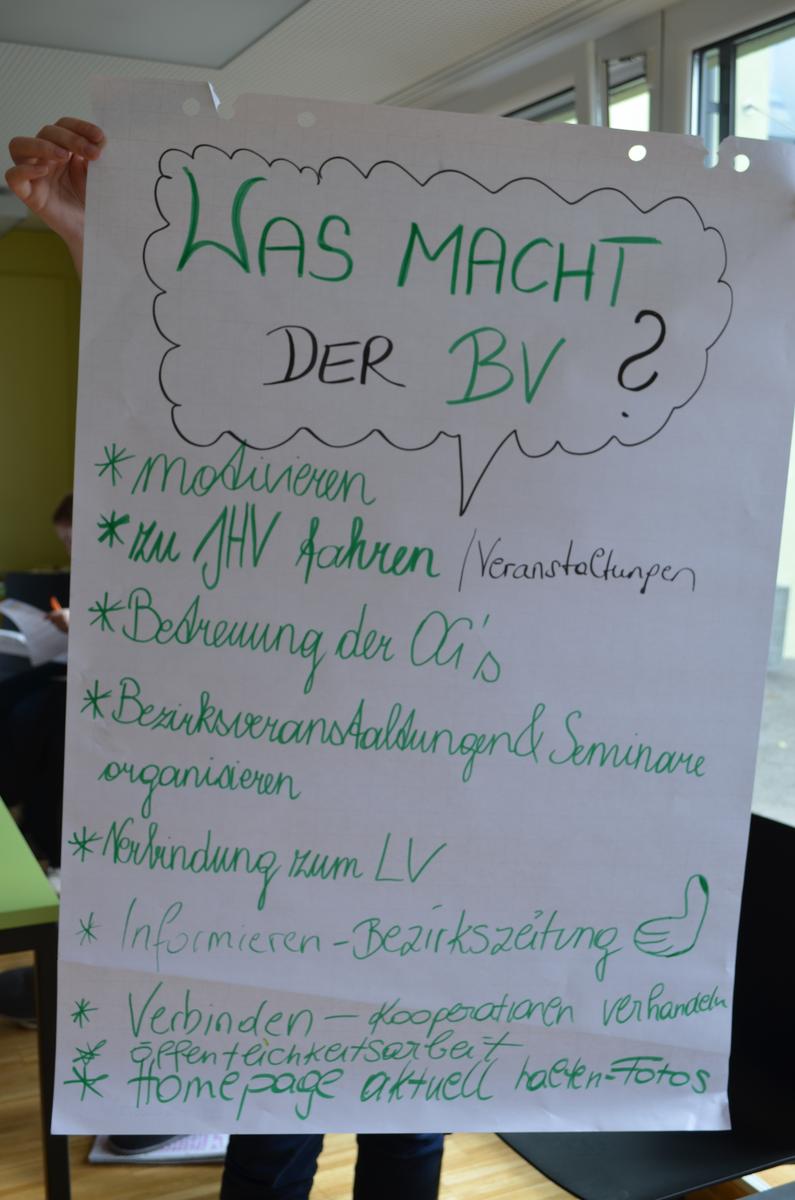 WAS MACHT
DER BV ?
* motivieren
* zu JHV fahren /Veranstaltungen
* Betreuung der OG's
* Bezirksveranstaltungen & Seminare
organisieren
* Verbindung zum LV
* Informieren - Bezirkszeitung
* Verbinden - Kooperationen verhandeln
* öffentlichkeitsarbeit
* Homepage aktuell halten - Fotos